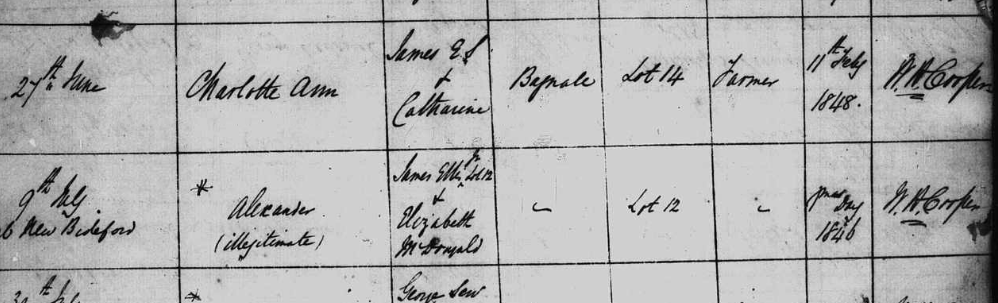 27th June
Charlotte Ann
James E S
+
Catharine
Bagnale
Lot 14
Farmer
11th Feby
1848.
W.A. Cooper
9th July
New Bideford
*
Alexander
(illegitimate)
James Lot 12
+
Elizabeth
McDonald
"
Lot 12
"
Day
1846
W.A. Cooper
th July
*
George